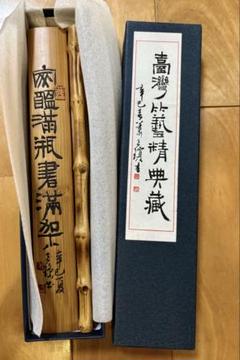 家醞滿瓶書滿架
辛巳夏
臺灣竹藝精典藏
辛巳